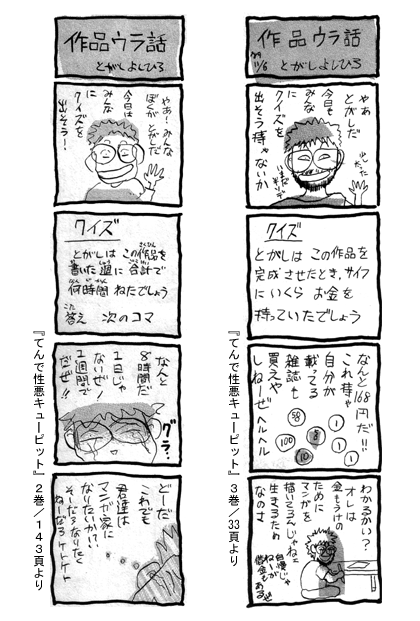 作品ウラ話
'89 11/6 とがしよしひろ
やあ
とがしだ
今日も
みんな
に
クイズを
出そう持ゃないか
クイズ
とがしは この作品を
完成させたとき、サイフ
にいくら お金を
持っていたでしょう
なんと168
円だ!!
これ持ゃ
自分が
載ってる
雑誌も
買えや
しねーぜヘルヘル
50
100
5
10
1
1
1
わかるかい?
オレは
金もうけの
ために
マンガを
描いてるんじゃねえ
生きるため
なのさ
自慢じゃ
ねーが
借金もあるぜ
『てんで性悪キューピット』3巻/33頁より
作品ウラ話
とがしよしひろ
やあ!みんな
ぼくがとがしだ
今日は
みんな
に
クイズを
出そう!
クイズ
とがしは この作品を
書いた週に合計で
何時間 ねたでしょう
答え 次のコマ
なんと
8時間だ
1日じゃ
ないぜ!
1週間で
だぜ!!
グラ…
どーだ
これでも
君達は
マンガ家に
なりたいか!?
そーだろなりたく
ねーだろケケケ
『てんで性悪キューピット』2巻/143頁より